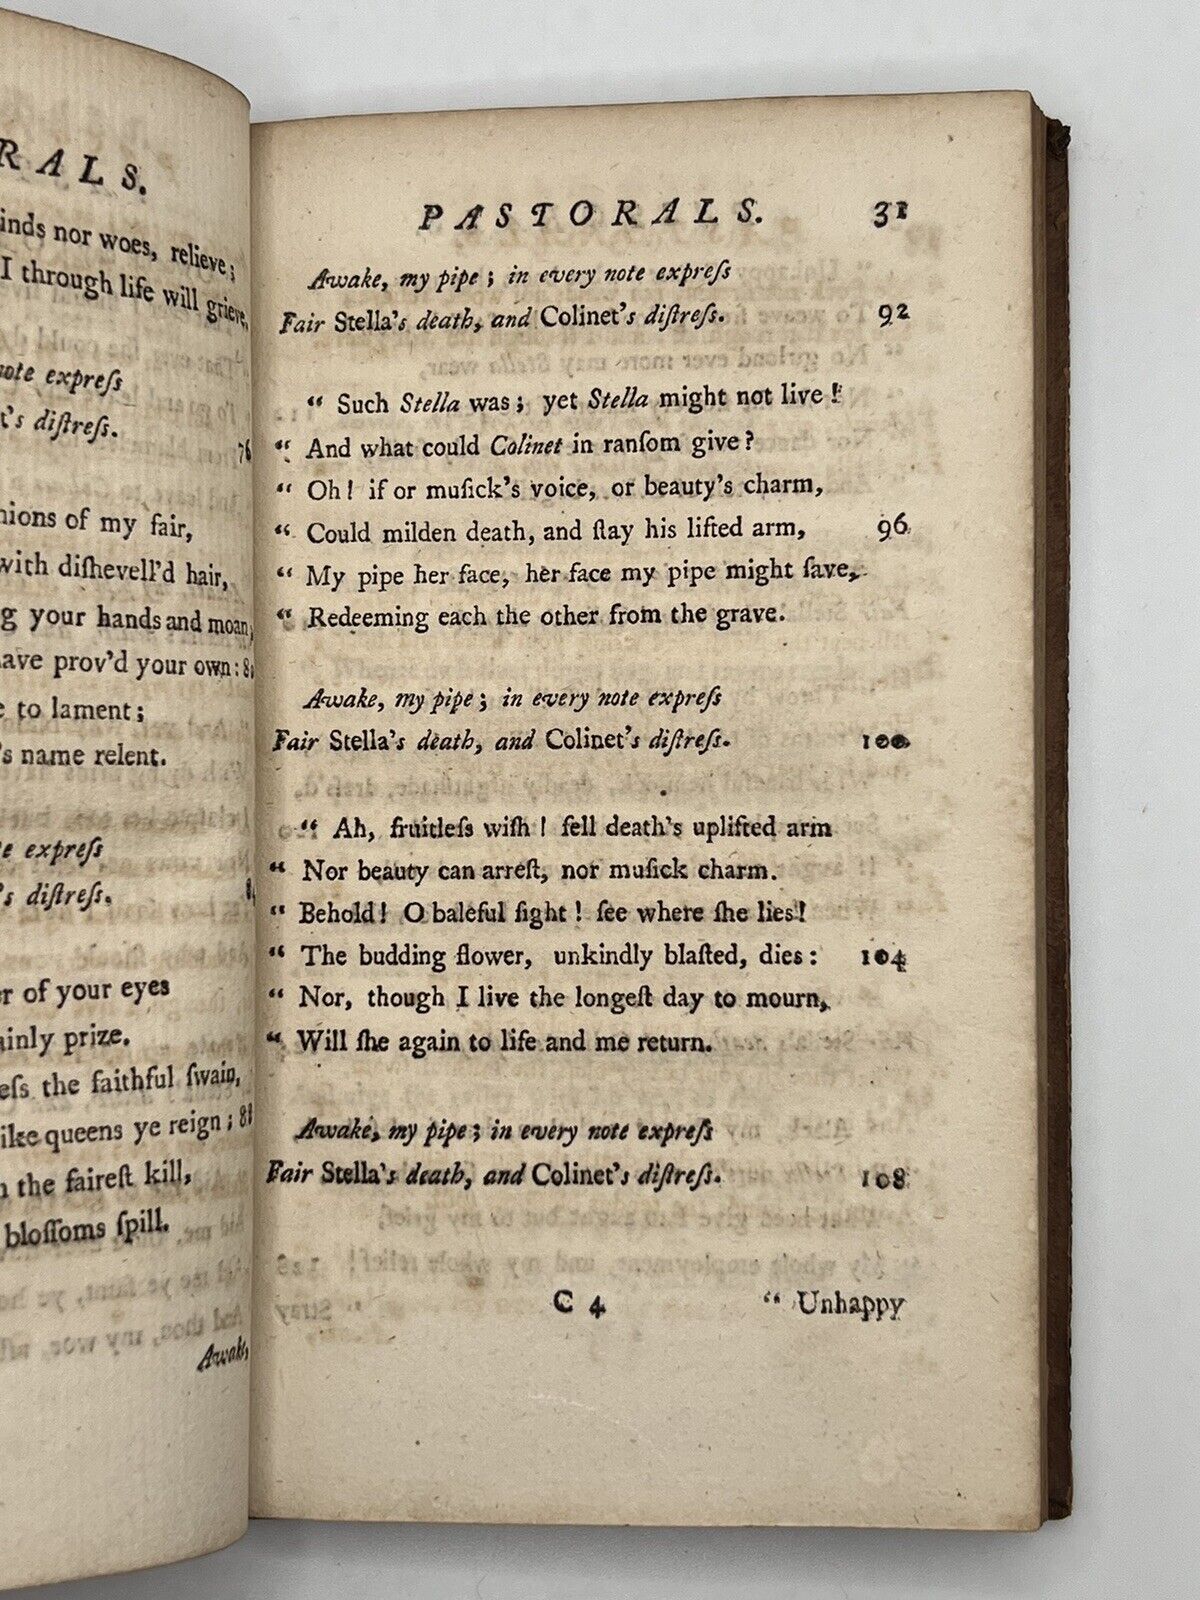 RALS.
inds nor woes, relieve;
I through life will grieve,
note expreſs
t's diſtreſs. 76
nions of my fair,
with diſhevell'd hair,
g your hands and moan,
ave prov'd your own:
e to lament;
's name relent.
e expreſs
's diſtreſs.
r of your eyes
ainly prize.
eſs the faithful ſwain,
ike queens ye reign; 88
n the faireſt kill,
bloſſoms ſpill.
Awake,
PASTORALS. 31
Awake, my pipe; in every note expreſs
Fair Stella's death, and Colinet's diſtreſs. 92
“ Such Stella was; yet Stella might not live!
“ And what could Colinet in ranſom give?
“ Oh! if or muſick's voice, or beauty's charm,
“ Could milden death, and ſtay his lifted arm, 96
“ My pipe her face, her face my pipe might ſave,
“ Redeeming each the other from the grave.
Awake, my pipe; in every note expreſs
Fair Stella's death, and Colinet's diſtreſs. 100
“ Ah, fruitleſs wiſh! fell death's uplifted arm
“ Nor beauty can arreſt, nor muſick charm.
“ Behold! O baleful ſight! ſee where ſhe lies!
“ The budding flower, unkindly blaſted, dies: 104
“ Nor, though I live the longeſt day to mourn,
“ Will ſhe again to life and me return.
Awake, my pipe; in every note expreſs
Fair Stella's death, and Colinet's diſtreſs. 108
C 4 “ Unhappy